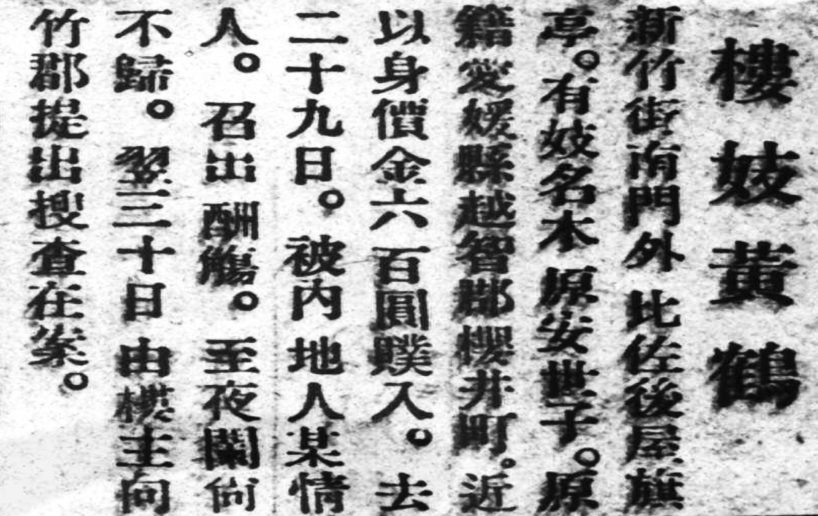 樓妓黃鶴
新竹街南門外比佐後屋旗
亭。有妓名本原安世子。原
籍愛媛縣越智郡櫻井町。近
以身價金六百圓贌入。去
二十九日。被內地人某情
人。召出酬觴。至夜闌尙
不歸。翌三十日由樓主向
竹郡提出搜查在案。